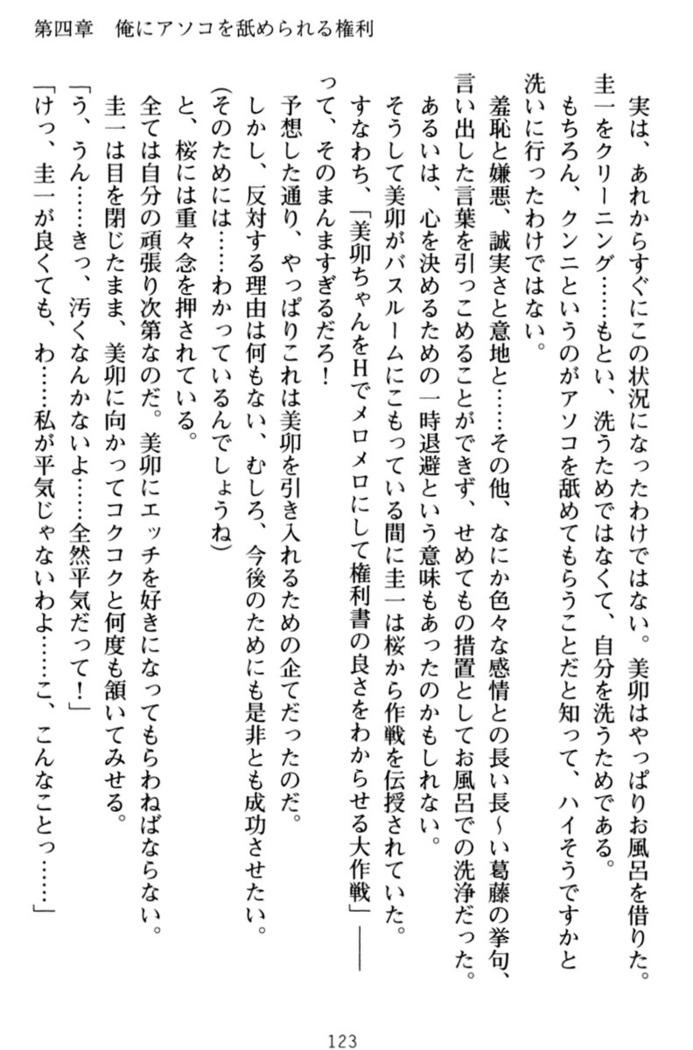 第四章　俺にアソコを舐められる権利
実は、あれからすぐにこの状況になったわけではない。美卯はやっぱりお風呂を借りた。
圭一をクリーニング……もとい、洗うためではなくて、自分を洗うためである。
もちろん、クンニというのがアソコを舐めてもらうことだと知って、ハイそうですかと
洗いに行ったわけではない。
羞恥と嫌悪、誠実さと意地と……その他、なにか色々な感情との長い長～い葛藤の挙句、
言い出した言葉を引っこめることができず、せめてもの措置としてお風呂での洗浄だった。
あるいは、心を決めるための一時退避という意味もあったのかもしれない。
そうして美卯がバスルームにこもっている間に圭一は桜から作戦を伝授されていた。
すなわち、「美卯ちゃんをHでメロメロにして権利書の良さをわからせる大作戦」――
って、そのまんますぎるだろ！
予想した通り、やっぱりこれは美卯を引き入れるための企てだったのだ。
しかし、反対する理由は何もない、むしろ、今後のためにも是非とも成功させたい。
(そのためには……わかっているんでしょうね)
と、桜には重々念を押されている。
全ては自分の頑張り次第なのだ。美卯にエッチを好きになってもらわねばならない。
圭一は目を閉じたまま、美卯に向かってコクコクと何度も頷いてみせる。
「う、うん……きっ、汚くなんかないよ……全然平気だって！」
「けっ、圭一が良くても、わ……私が平気じゃないわよ……こ、こんなことっ……」
123